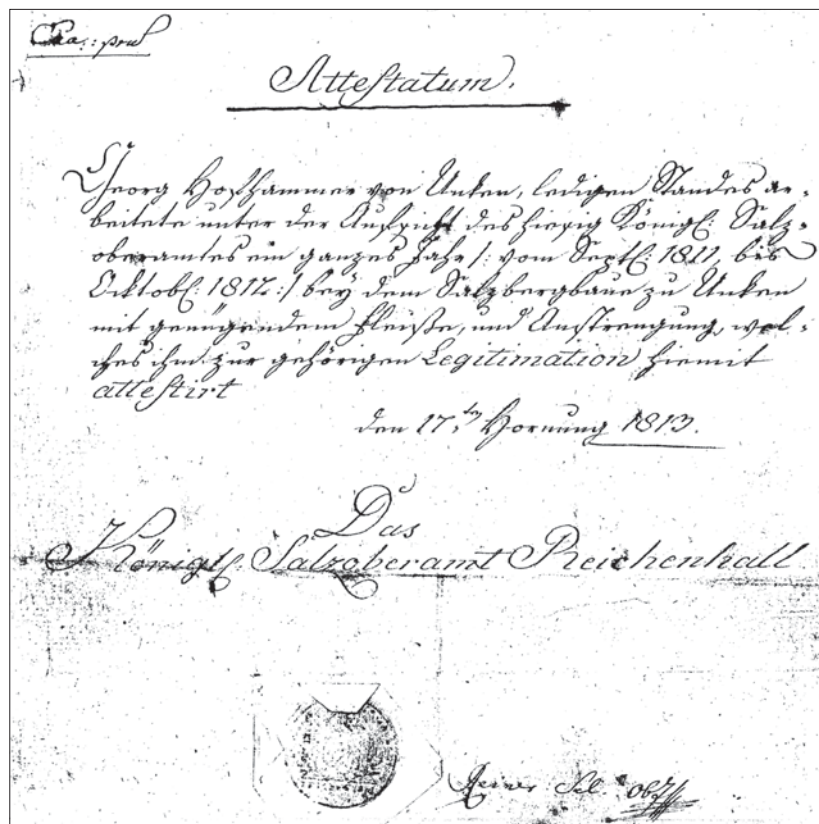 Attestatum.
Georg Hofhammer von Unken, ledigen Standes ar-
beitete unter der Aufsicht des hiesig Königl: Salz-
oberamtes ein ganzes Jahr /: vom Septb: 1811, bis
Ocktob: 1812 :/ bey dem Salzbergbaue zu Unken
mit genügendem Fleiße, und Anstrengung, wel-
ches ihm zur gehörigen Legitimation hiemit
attestirt
den 17ten Hornung 1813.
Das
Königl: Salzoberamt Reichenhall